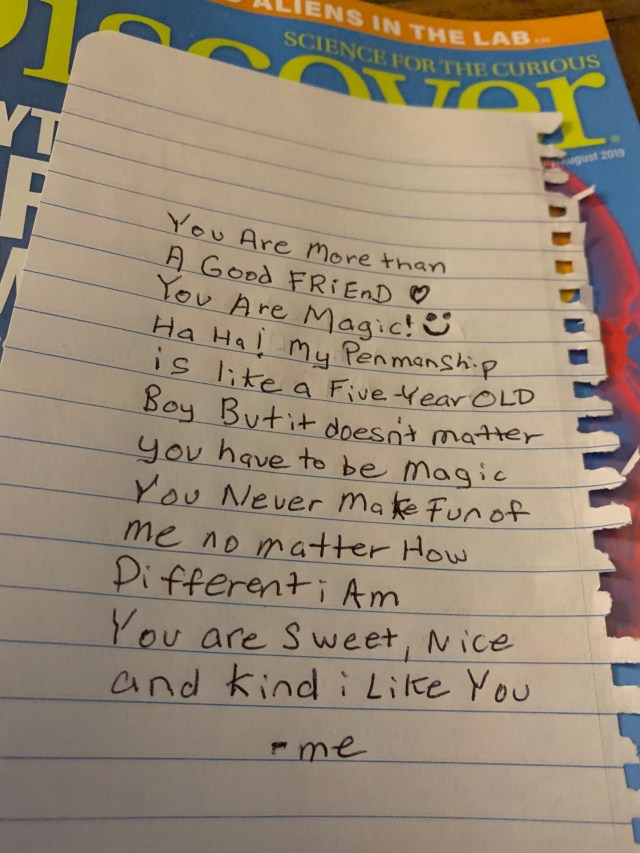 ALIENS IN THE LAB
SCIENCE FOR THE CURIOUS
Discover
August 2019
You Are More than
A Good FRiEnD ♡
You Are Magic! ☺
Ha Ha! My Penmanship
is like a Five Year OLD
Boy But it doesn't matter
you have to be magic
You Never Make Fun of
me no matter How
Different i Am
You are Sweet, Nice
and kind i Like You
- me